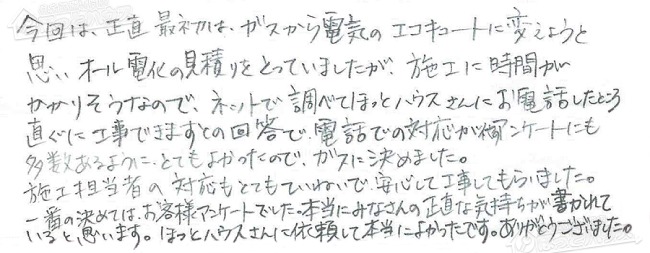 今回は、正直最初は、ガスから電気のエコキュートに変えようと
思い、オール電化の見積りをとっていましたが、施工に時間が
かかりそうなので、ネットで調べてほっとハウスさんにお電話したところ
直ぐに工事できますとの回答で、電話での対応がアンケートにも
多数あるように、とてもよかったので、ガスに決めました。
施工担当者の対応もとてもていねいで、安心して工事してもらいました。
一番の決めては、お客様アンケートでした。本当にみなさんの正直な気持ちが書かれて
いると思います。ほっとハウスさんに依頼して本当によかったです。ありがとうございました。